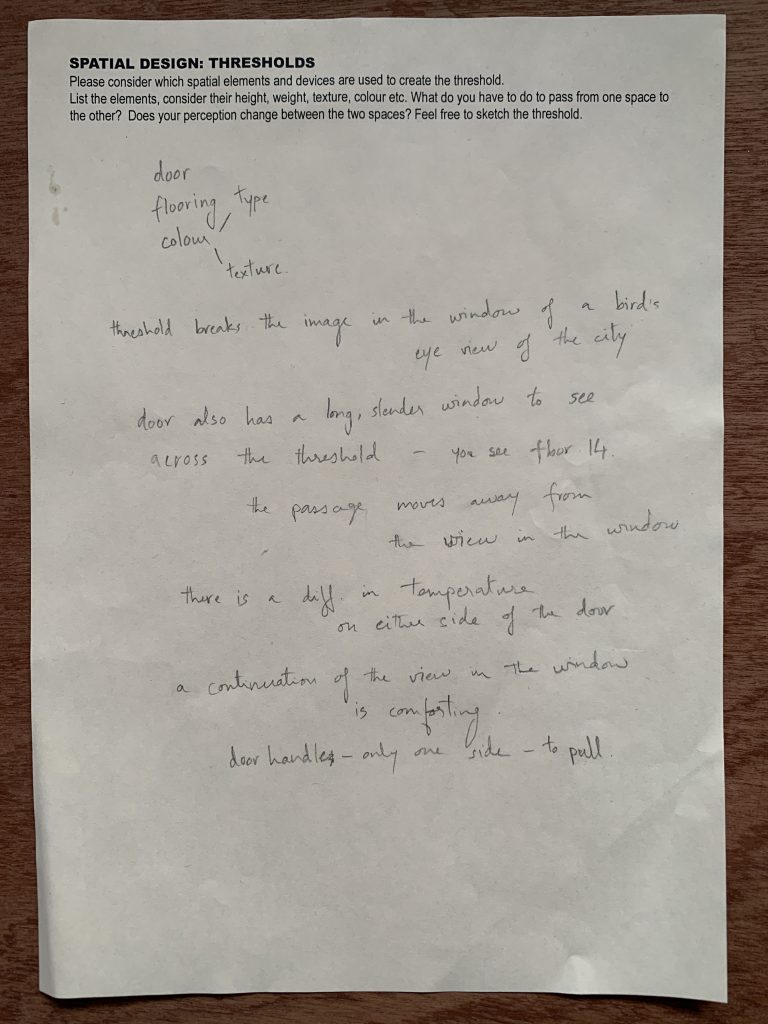 SPATIAL DESIGN: THRESHOLDS
Please consider which spatial elements and devices are used to create the threshold.
List the elements, consider their height, weight, texture, colour etc. What do you have to do to pass from one space to
the other? Does your perception change between the two spaces? Feel free to sketch the threshold.
door
flooring type
colour
texture.
threshold breaks the image in the window of a bird's
eye view of the city
door also has a long, slender window to see
across the threshold - you see floor 14.
the passage moves away from
the view in the window
there is a diff. in temperature
on either side of the door
a continuation of the view in the window
is comforting.
door handles - only one side - to pull.